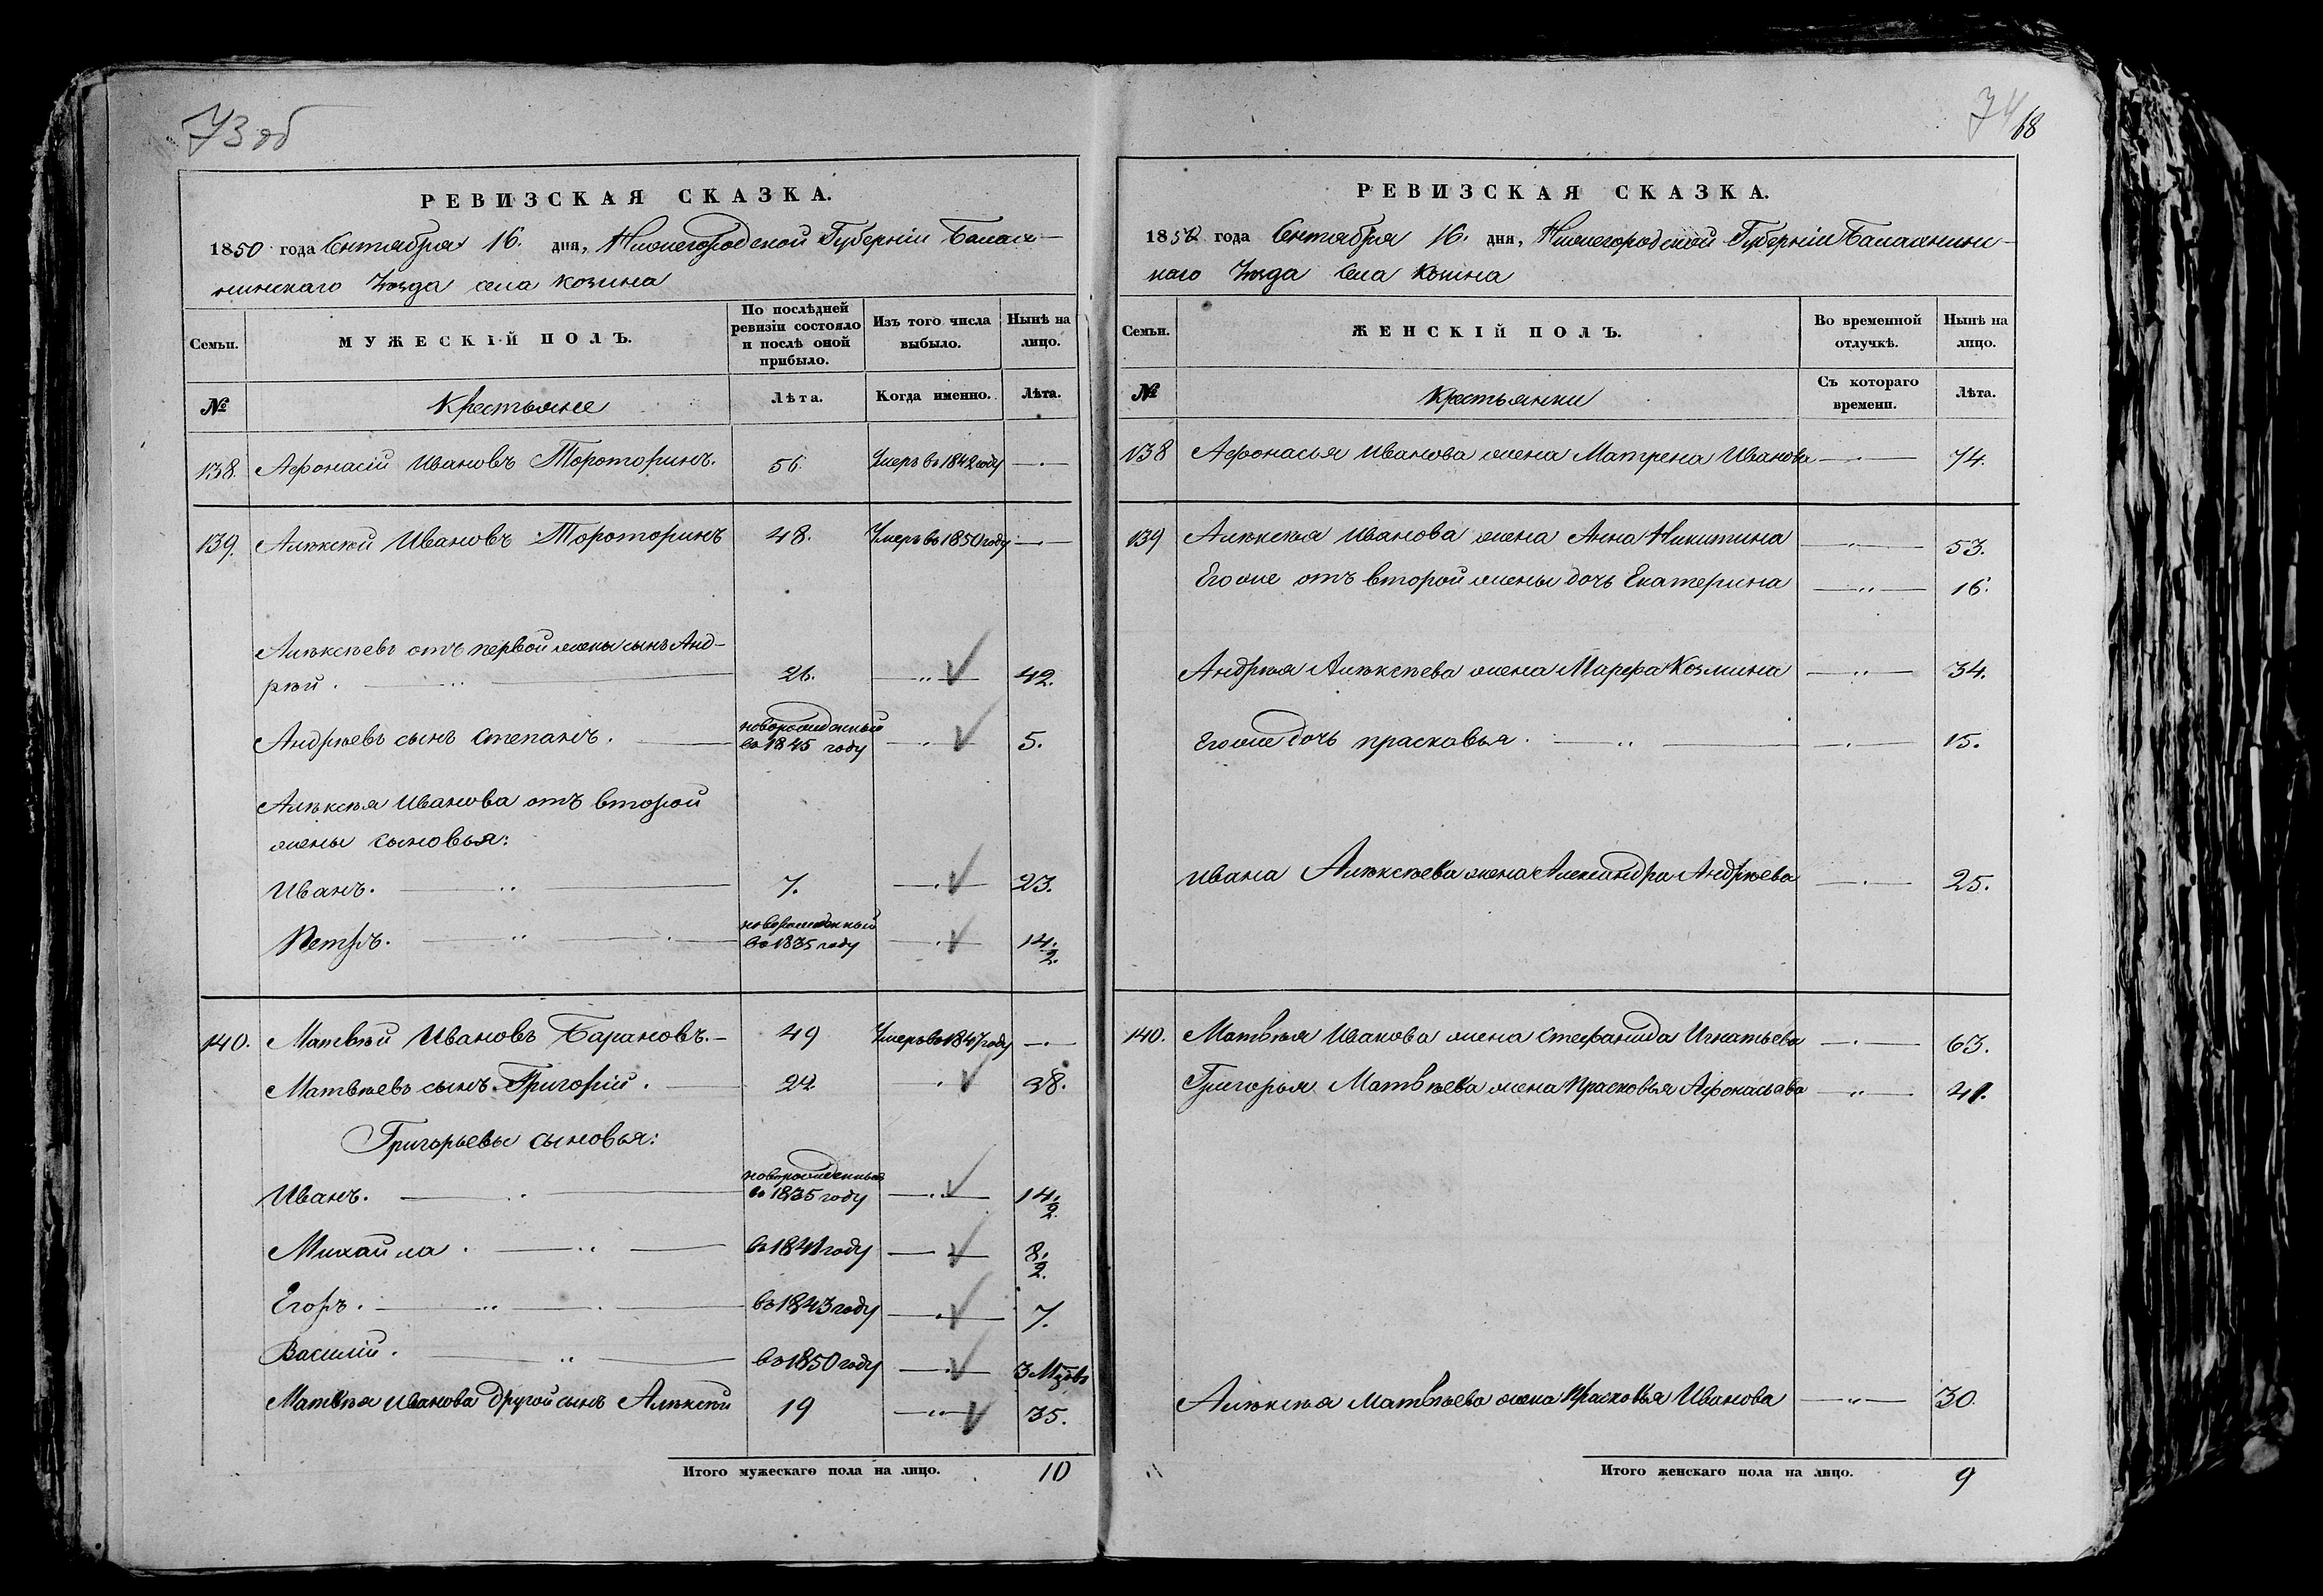 73 об
РЕВИЗСКАЯ СКАЗКА.
1850 года Сентября 16. дня, Нижегородской Губерніи Балах-
нинскаго Уезда села Козина
Семьи.
МУЖЕСКІЙ ПОЛЪ.
По послѣдней ревизіи состояло и послѣ оной прибыло.
Изъ того числа выбыло.
Нынѣ на лицо.
№
Крестьяне
Лѣта.
Когда именно.
Лѣта.
138. Афонасій Ивановъ Тороторинъ. 56. Умеръ въ 1842 году
139. Алѣксѣй Ивановъ Тороторинъ 48. Умеръ въ 1850 году
Алѣксѣевъ отъ первой жены сынъ Анд-
рѣй. 26. 42.
Андрѣевъ сынъ Степанъ. новорожденный въ 1845 году 5.
Алѣксѣя Иванова отъ второй
жены сыновья:
Иванъ. 7. 23.
Петръ. новорожденный въ 1835 году 14. 1/2.
140. Матвѣй Ивановъ Барановъ. 49 Умеръ въ 1847 году
Матвѣевъ сынъ Григорій. 22 38.
Григорьевы сыновья:
Иванъ. новорожденный въ 1835 году 14. 1/2.
Михайла. въ 1841 году 8. 1/2.
Егоръ. въ 1843 году 7.
Василій. въ 1850 году 3 Мцовъ
Матвѣя Иванова другой сынъ Алѣксѣй 19 35.
Итого мужескаго пола на лицо. 10
74
68
РЕВИЗСКАЯ СКАЗКА.
1850 года Сентября 16. дня, Нижегородской Губерніи Балахнинс-
каго Уезда Села Козина
Семьи.
ЖЕНСКІЙ ПОЛЪ.
Во временной отлучкѣ.
Нынѣ на лицо.
№
Крестьянки
Съ котораго времени.
Лѣта.
138 Афонасья Иванова жена Матрена Иванова 74.
139 Алѣксѣя Иванова жена Анна Никитина 53.
Его же отъ второй жены дочь Екатерина 16.
Андрѣя Алѣксѣева жена Марфа Козмина 34.
Его же дочь Прасковья. 15.
Ивана Алѣксѣева жена Александра Андрѣева 25.
140. Матвѣя Иванова жена Стефанида Игнатьева 63.
Григорья Матвѣева жена Прасковья Афонасьева 41.
Алѣксѣя Матвѣева жена Прасковья Иванова 30.
Итого женскаго пола на лицо. 9